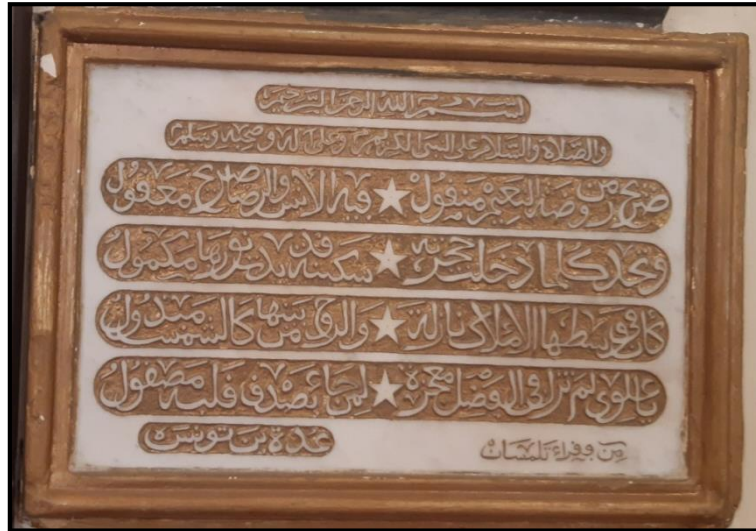 بسم الله الرحمن الرحيم
والصلاة والسلام على النبي الكريم وعلى آله وصحبه وسلم
ضريح من روضة النعيم منقول ★ فيه الأنس والرضا معقول
وتجد كلما دخلت حجرته ★ سكينة قد نورها مكمول
كان في وسطها الأملاك نازلة ★ والروح بينها كالشمس مبدول
يا علوي لم تزل في الفضل معجزة ★ لمن جاء بصدق قلبه مصقول
عدة بن تونس
من فقراء تلمسان